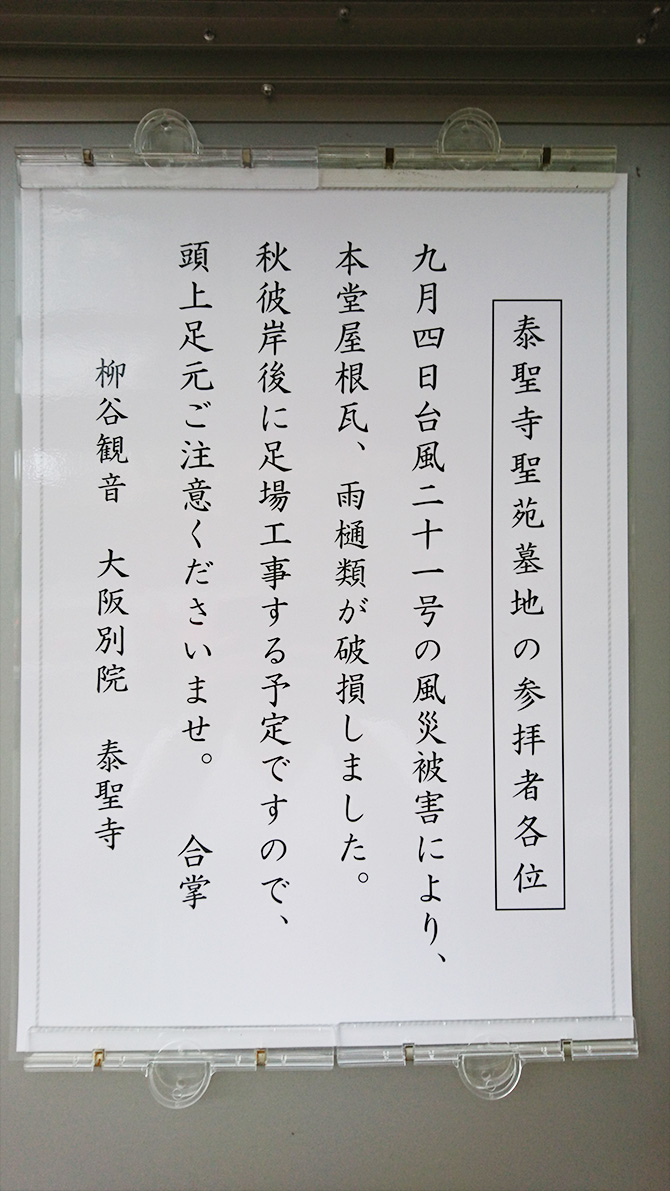 泰聖寺聖苑墓地の参拝者各位
九月四日台風二十一号の風災被害により、
本堂屋根瓦、雨樋類が破損しました。
秋彼岸後に足場工事する予定ですので、
頭上足元ご注意くださいませ。 合掌
柳谷観音 大阪別院 泰聖寺